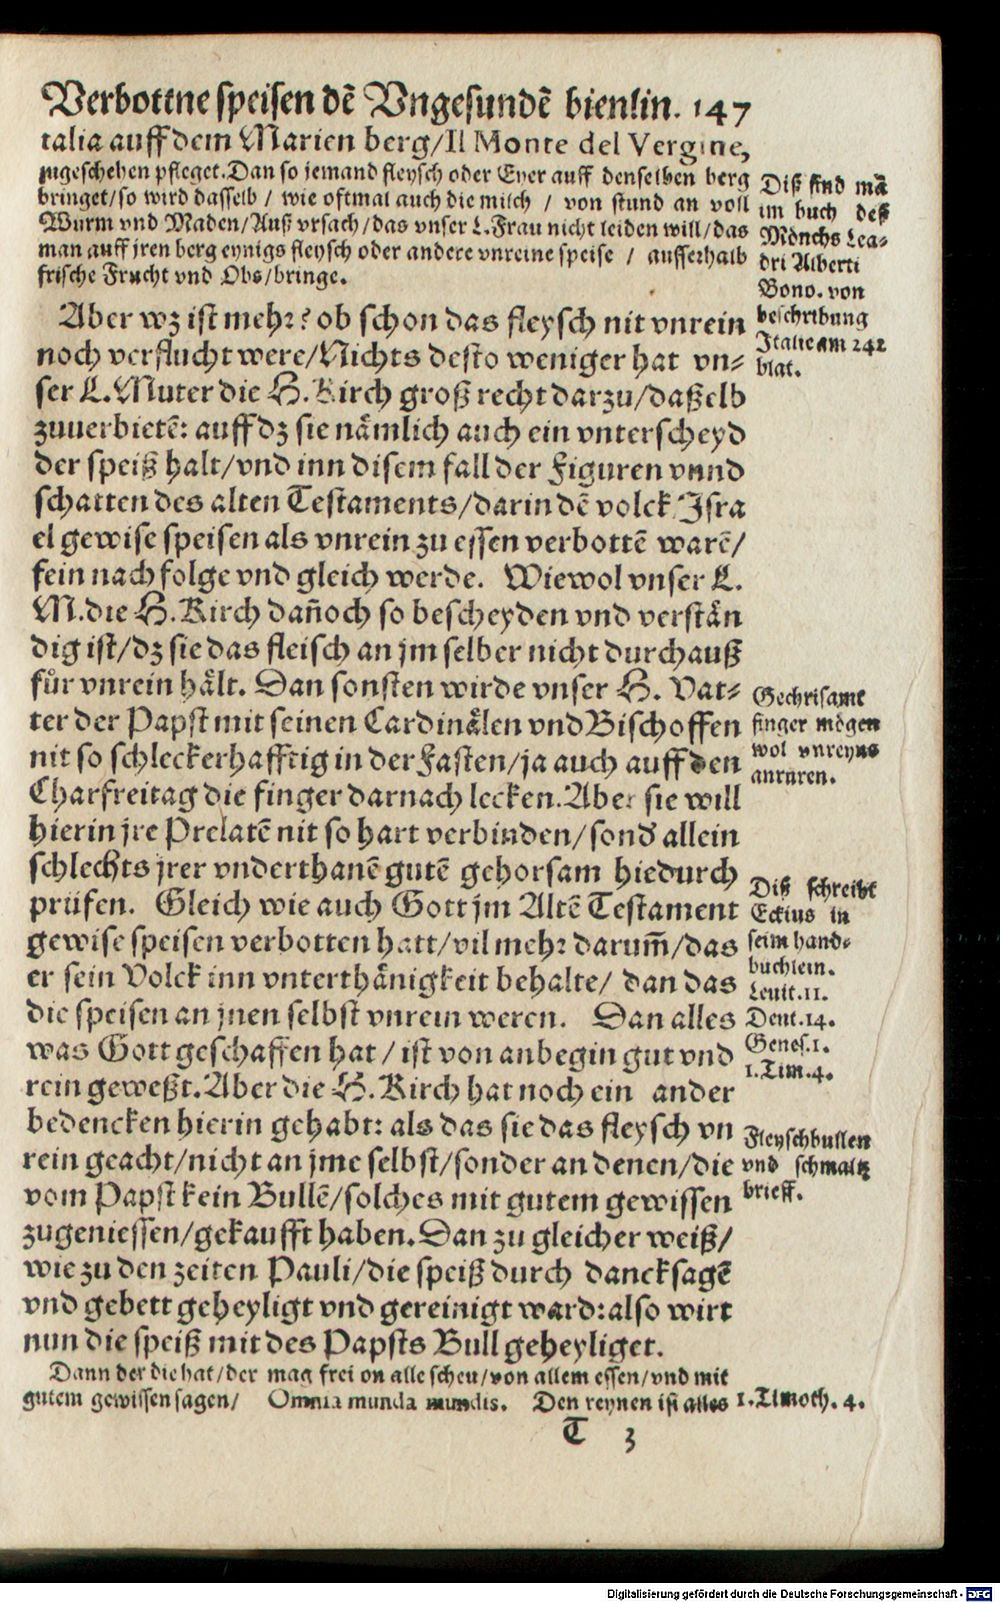 Verbottne speisen dē Vngesundē bienlin. 147
talia auff dem Marien berg/Il Monte del Vergine,
zugeschehen pfleget. Dan so jemand fleysch oder Eyer auff denselben berg
bringet/so wird dasselb / wie oftmal auch die milch / von stund an voll
Wurm vnd Maden/Auß vrsach/das vnser L. Frau nicht leiden will/das
man auff jren berg eynigs fleysch oder andere vnreine speise / ausserhalb
frische Frucht vnd Obs/bringe.
Diß find mā
im buch deß
Mönchs Lea-
dri Alberti
Bono. von
beschribung
Italie am 242
blat.
Aber wz ist mehr? ob schon das fleysch nit vnrein
noch verflucht were/Nichts desto weniger hat vn-
ser L. Muter die H. Kirch groß recht darzu/daßelb
zuuerbietē: auff dz sie nämlich auch ein vnterscheyd
der speiß halt/vnd inn disem fall der Figuren vnnd
schatten des alten Testaments/darin dē volck Isra
el gewise speisen als vnrein zu essen verbottē warē/
fein nachfolge vnd gleich werde. Wiewol vnser L.
M. die H. Kirch dañoch so bescheyden vnd verstän
dig ist/dz sie das fleisch an jm selber nicht durchauß
fůr vnrein hält. Dan sonsten wirde vnser H. Vat-
ter der Papst mit seinen Cardinälen vnd Bischoffen
nit so schleckerhafftig in der Fasten/ja auch auff den
Charfreitag die finger darnach lecken. Aber sie will
hierin jre Prelatē nit so hart verbinden/sond' allein
schlechts jrer vnderthanē gutē gehorsam hiedurch
prüfen. Gleich wie auch Gott jm Altē Testament
gewise speisen verbotten hatt/vil mehr darum̄/das
er sein Volck inn vnterthänigkeit behalte/ dan das
die speisen an jnen selbst vnrein weren. Dan alles
was Gott geschaffen hat / ist von anbegin gut vnd
rein geweßt. Aber die H. Kirch hat noch ein ander
bedencken hierin gehabt: als das sie das fleysch vn
rein geacht/nicht an jme selbst/sonder an denen/die
vom Papst kein Bullē/solches mit gutem gewissen
zugeniessen/gekaufft haben. Dan zu gleicher weiß/
wie zu den zeiten Pauli/die speiß durch dancksagē
vnd gebett geheyligt vnd gereinigt ward: also wirt
nun die speiß mit des Papsts Bull geheyliget.
Gechrisamt
finger mögen
wol vnreyns
anruren.
Diß schreibt
Eckius in
seim hand-
buchlein.
Leuit. 11.
Deut. 14.
Genes. 1.
1. Tim. 4.
Fleyschbullen
vnd schmaltz
brieff.
Dann der die hat/der mag frei on alle scheu/von allem essen/vnd mit
gutem gewissen sagen/ Omnia munda mundis. Den reynen ist alles
1. Timoth. 4.
T 3
Digitalisierung gefördert durch die Deutsche Forschungsgemeinschaft - DFG